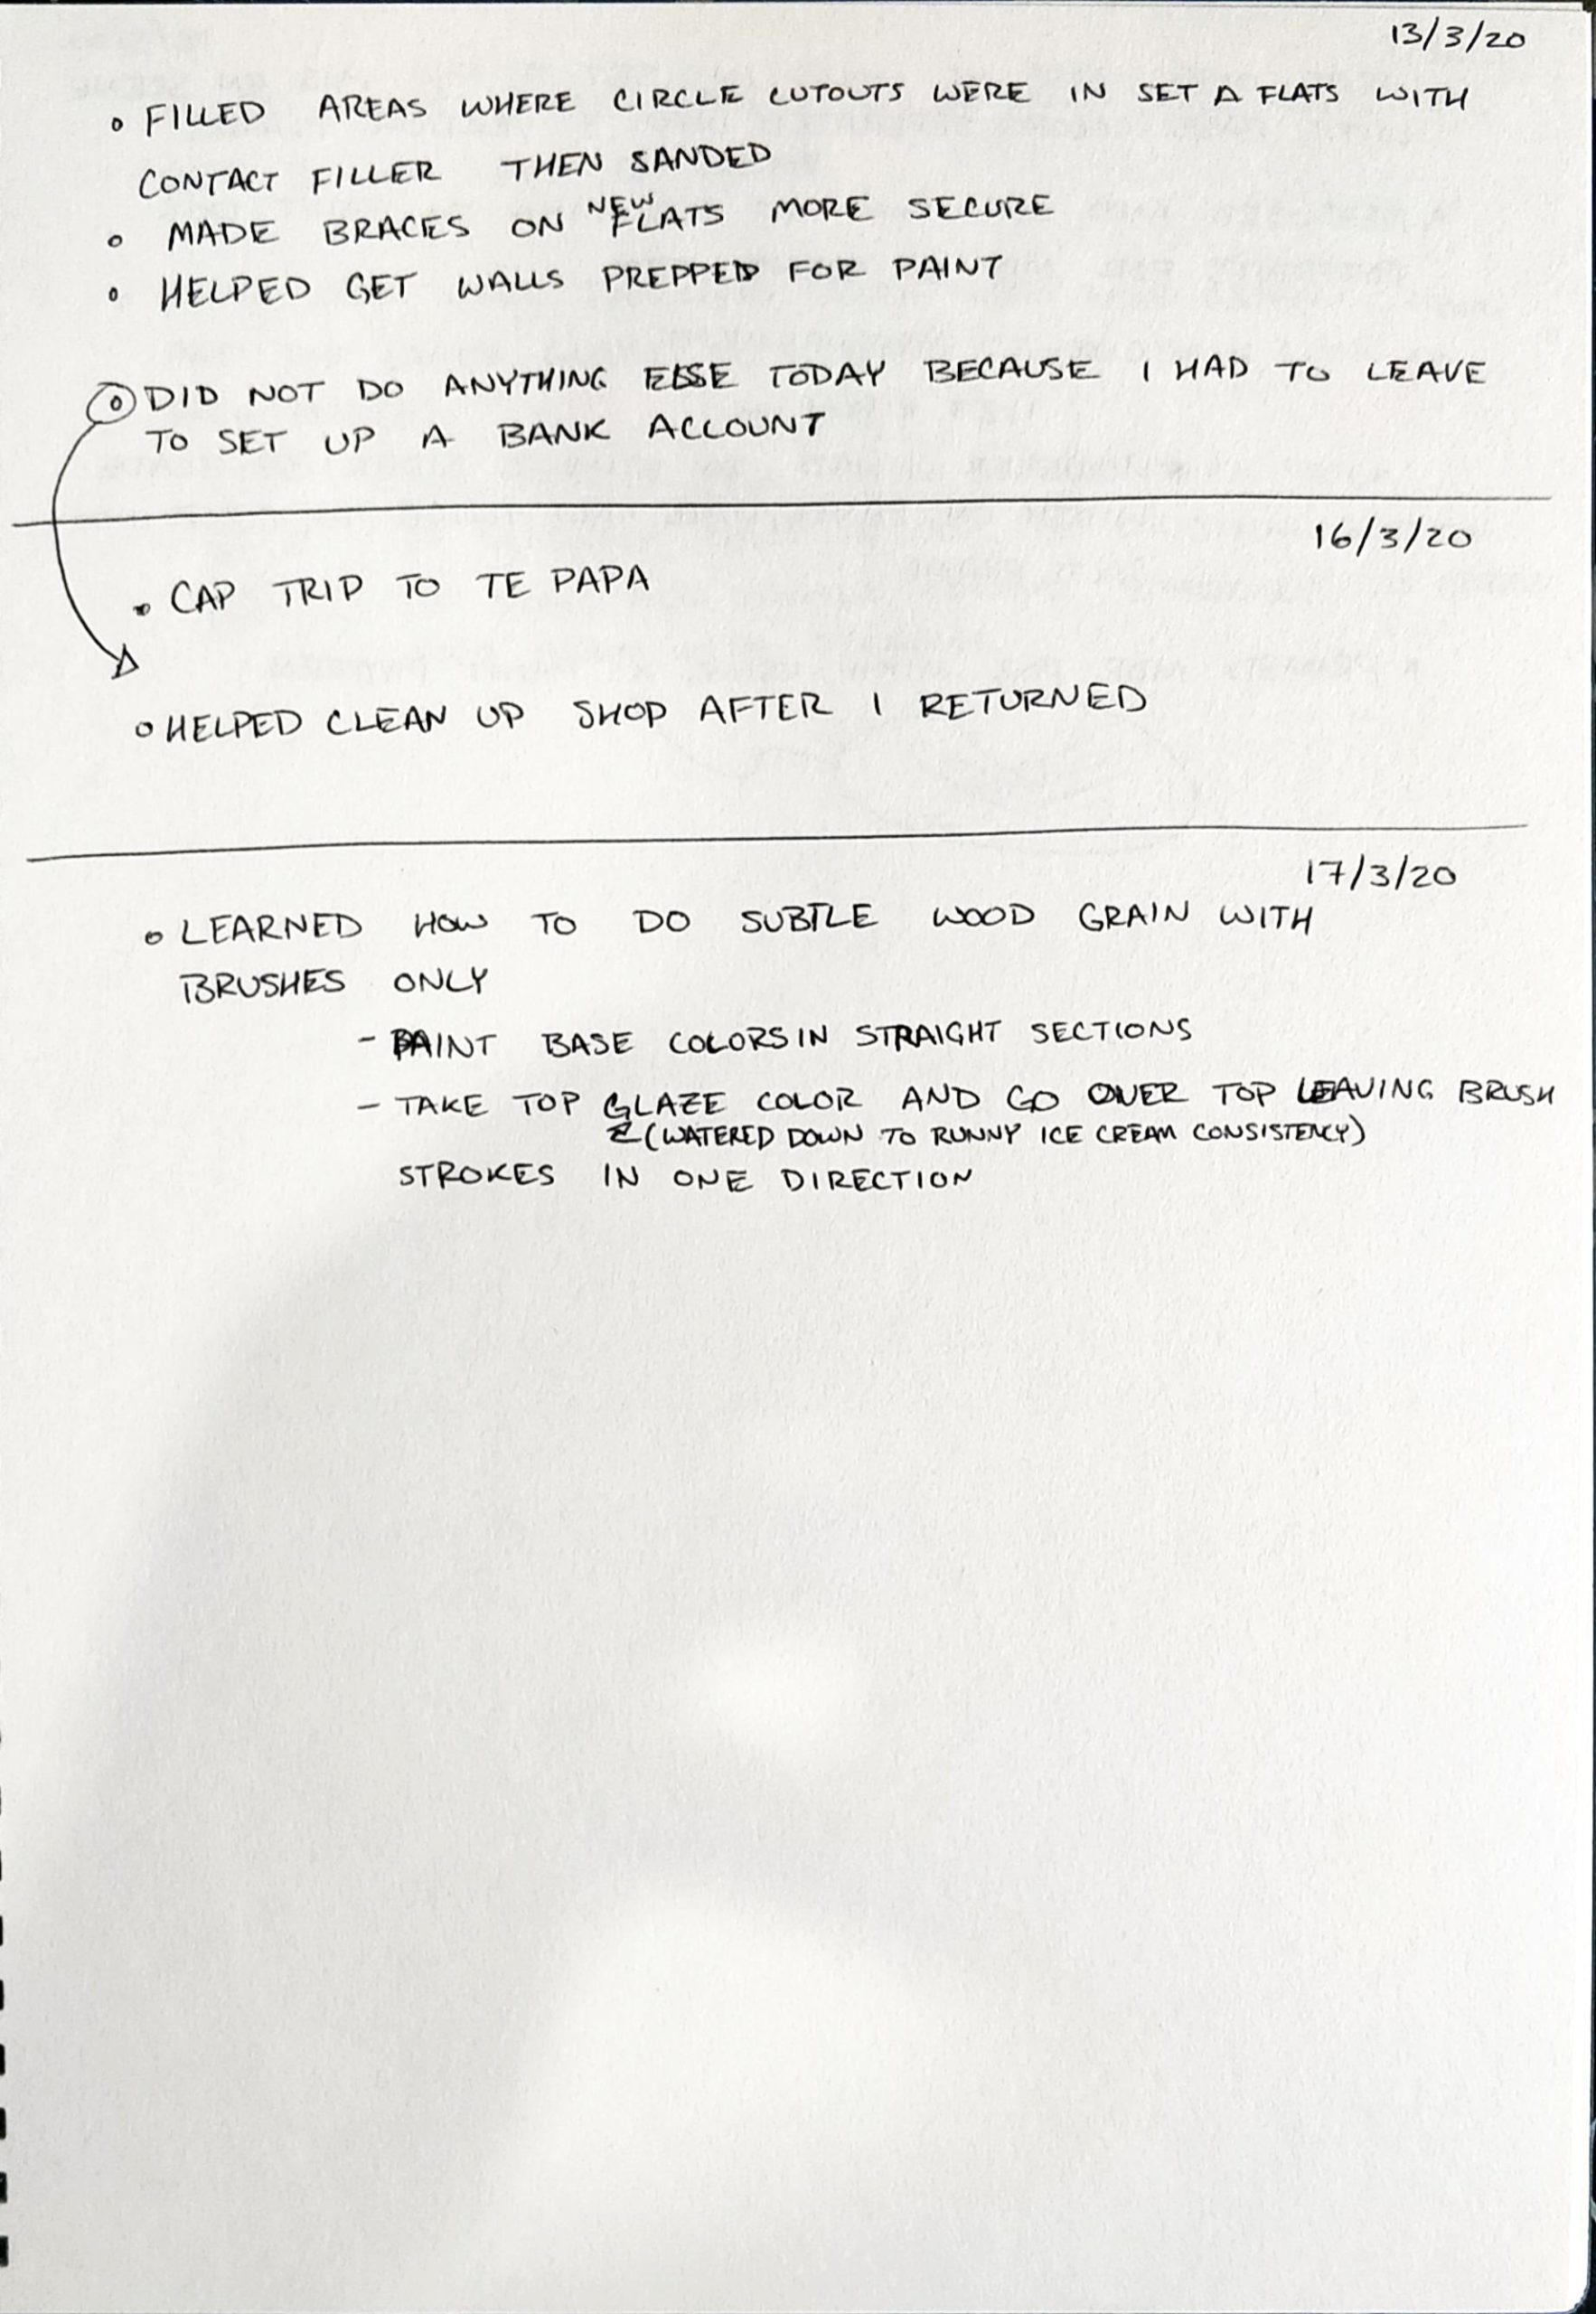 13/3/20
• FILLED AREAS WHERE CIRCLE CUTOUTS WERE IN SET A FLATS WITH
CONTACT FILLER THEN SANDED
• MADE BRACES ON NEW FLATS MORE SECURE
• HELPED GET WALLS PREPPED FOR PAINT
• DID NOT DO ANYTHING ELSE TODAY BECAUSE I HAD TO LEAVE
TO SET UP A BANK ACCOUNT
16/3/20
• CAP TRIP TO TE PAPA
• HELPED CLEAN UP SHOP AFTER I RETURNED
17/3/20
• LEARNED HOW TO DO SUBTLE WOOD GRAIN WITH
BRUSHES ONLY
- PAINT BASE COLORS IN STRAIGHT SECTIONS
- TAKE TOP GLAZE COLOR AND GO OVER TOP LEAVING BRUSH
(WATERED DOWN TO RUNNY ICE CREAM CONSISTENCY)
STROKES IN ONE DIRECTION